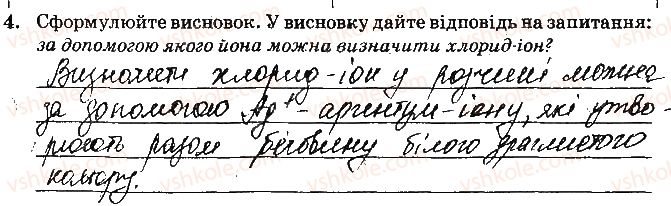 4. Сформулюйте висновок. У висновку дайте відповідь на запитання:
за допомогою якого йона можна визначити хлорид-іон?
Визначити хлорид-іон у розчині можна
за допомогою Ag⁺-аргентум-іону, які утво-
рюють разом речовину білого драглистого
кольору.